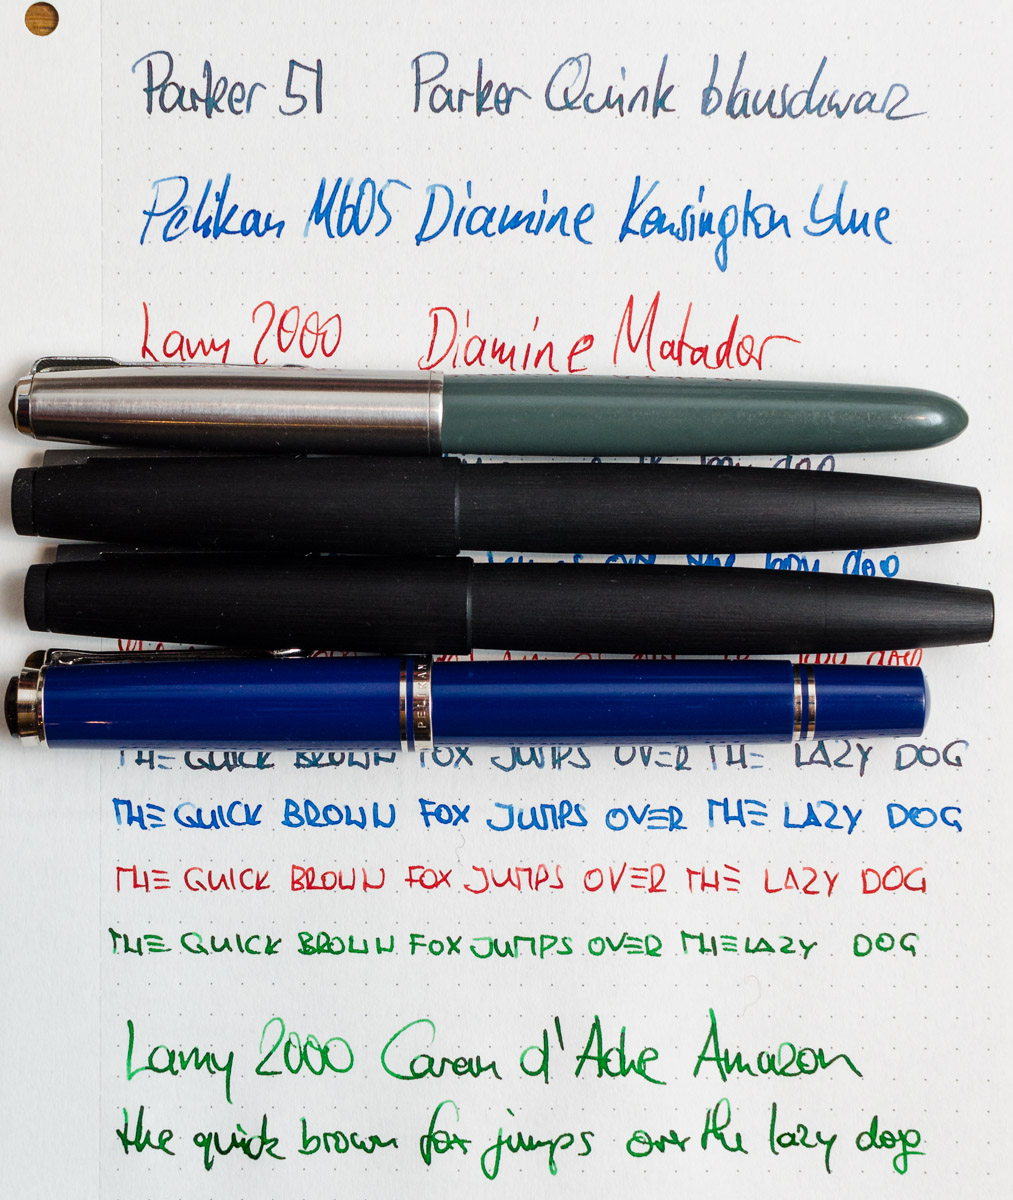 Parker 51 Parker Quink blauschwarz
Pelikan M605 Diamine Kensington blue
Lamy 2000 Diamine Matador
dog
over the lazy dog
lazy dog
PELIKAN
THE QUICK BROWN FOX JUMPS OVER THE LAZY DOG
THE QUICK BROWN FOX JUMPS OVER THE LAZY DOG
THE QUICK BROWN FOX JUMPS OVER THE LAZY DOG
THE QUICK BROWN FOX JUMPS OVER THE LAZY DOG
Lamy 2000 Caran d'Ache Amazon
the quick brown fox jumps over the lazy dog